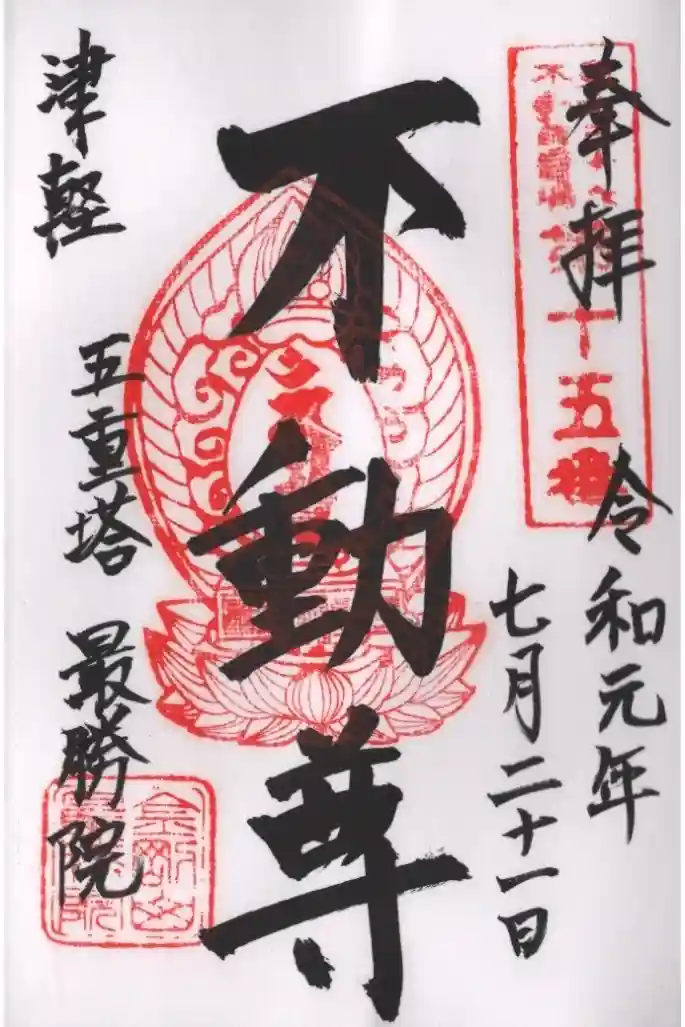 奉拝
令和元年
七月二十一日
不動尊
津軽
五重塔 最勝院
十五番
金剛山
最勝院